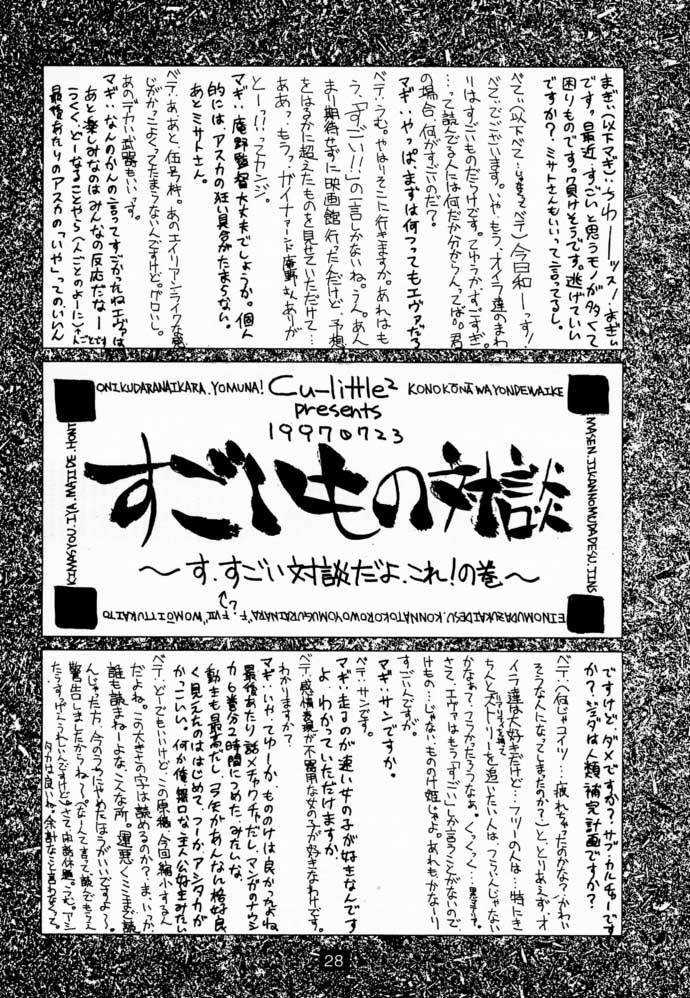 まぎぃ(以下マギ):ちわーーッス!まぎぃ
です。最近、すごいと思うモノが多くて
困りものです。負けそうです。逃げていい
ですか?ミサトさんもいいって言ってるし。
ベてぃ(以下ベて…じゃなくてベテ):今日和ーっす!
べてぃでございます。いや、もう、オイラ達のまわ
りはすごいものだらけです。てゆうか、すごすぎ。
…って読んでる人には何だか分からんってば。君
の場合、何がすごいのだ?
マギ:やっぱ、まずは何つってもエヴァだろ
ベテ:うむ。やはりそこに行きますか。あれはも
う、「すごい!!」の一言しかないね。うん。あん
まり期待せずに映画館行ったんだけど、予想
をはるかに超えたものを見せていただけて…
ああっ、もうっ、ガイナァーンド庵野さんありが
とー!?ってカンジ。
マギ:庵野監督大丈夫でしょうか。個人
的には、アスカの狂い具合がたまらない。
あとミサトさん。
ベテ:ああと、伍号機。あのエイリアンライクな
じがかっこよくってたまらないんですけど。グロいし。
あのデカい武器もいいっす。
マギ:なんのかんの言ってすごかったねエヴァは
あと楽しみなのはみんなの反応だなーっと
くっくくどーなることやら(人ごとのよーに)
最後あたりのアスカの「いや」ってのいいん
ONIKUDARANAIKARA.YOMUNA! Cu-little² KONOKONAWAYONDEWAIKE
presents
19970723
すごいもの対談
〜す、すごい対談だよ、これ!の巻〜
MASEN JIKANNOMUDADESU.JINS
EINOMUDAZUKAIDESU.KONNATOKOROWOYOMUGURAINARA"F.F.VII"WOMOITTUKAITO
?
ですけどダメですか?サブ・カルチャーです
か?ジョブは人類補完計画ですか?
ベテ:(何じゃコイツ…疲れちゃったのかな?かわい
そうな人になってしまったのか?)と、とりあえず、オ
イラ達大好きだけど…フリーの人は…特にき
ちんとストーリーを追いたい人は、つらいんじゃない
かなぁ?フツーだろうなぁ。くっくっく…
さて、エヴァはもう「すごい」しか言うことがないので
けもの…じゃない、もののけ姫じゃよ。あれもかなーり
すごいんですが。
マギ:サンですか。
ベテ:サンです。
マギ:走るのが速い女の子が好きなんです
よ。わかっていただけますか
ベテ:感情表現が不器用な女の子が好きなわけです。
わかりますか?
マギ:いや、てゆーか もののけは良かったよね
最後あたり話メチャクチャだし、マンガのナウシ
カ6巻分2時間につめた、みたいな。
動きも最高だし、弓矢があんなに格好良
く見えたのははじめて。つーか、アシタカが
かっこいい。何か俺無口な主人公好きみたい
ベテ:どーでもいいけど、この原稿、今回縮小するん
だよね。この大きさの字は読めるのか?まいっか
誰も読まねーよな、こんな所。運悪くここまで読
んじゃった方、今のうちにやめたほうがいいですよ〜。
警告しましたからねー?
28